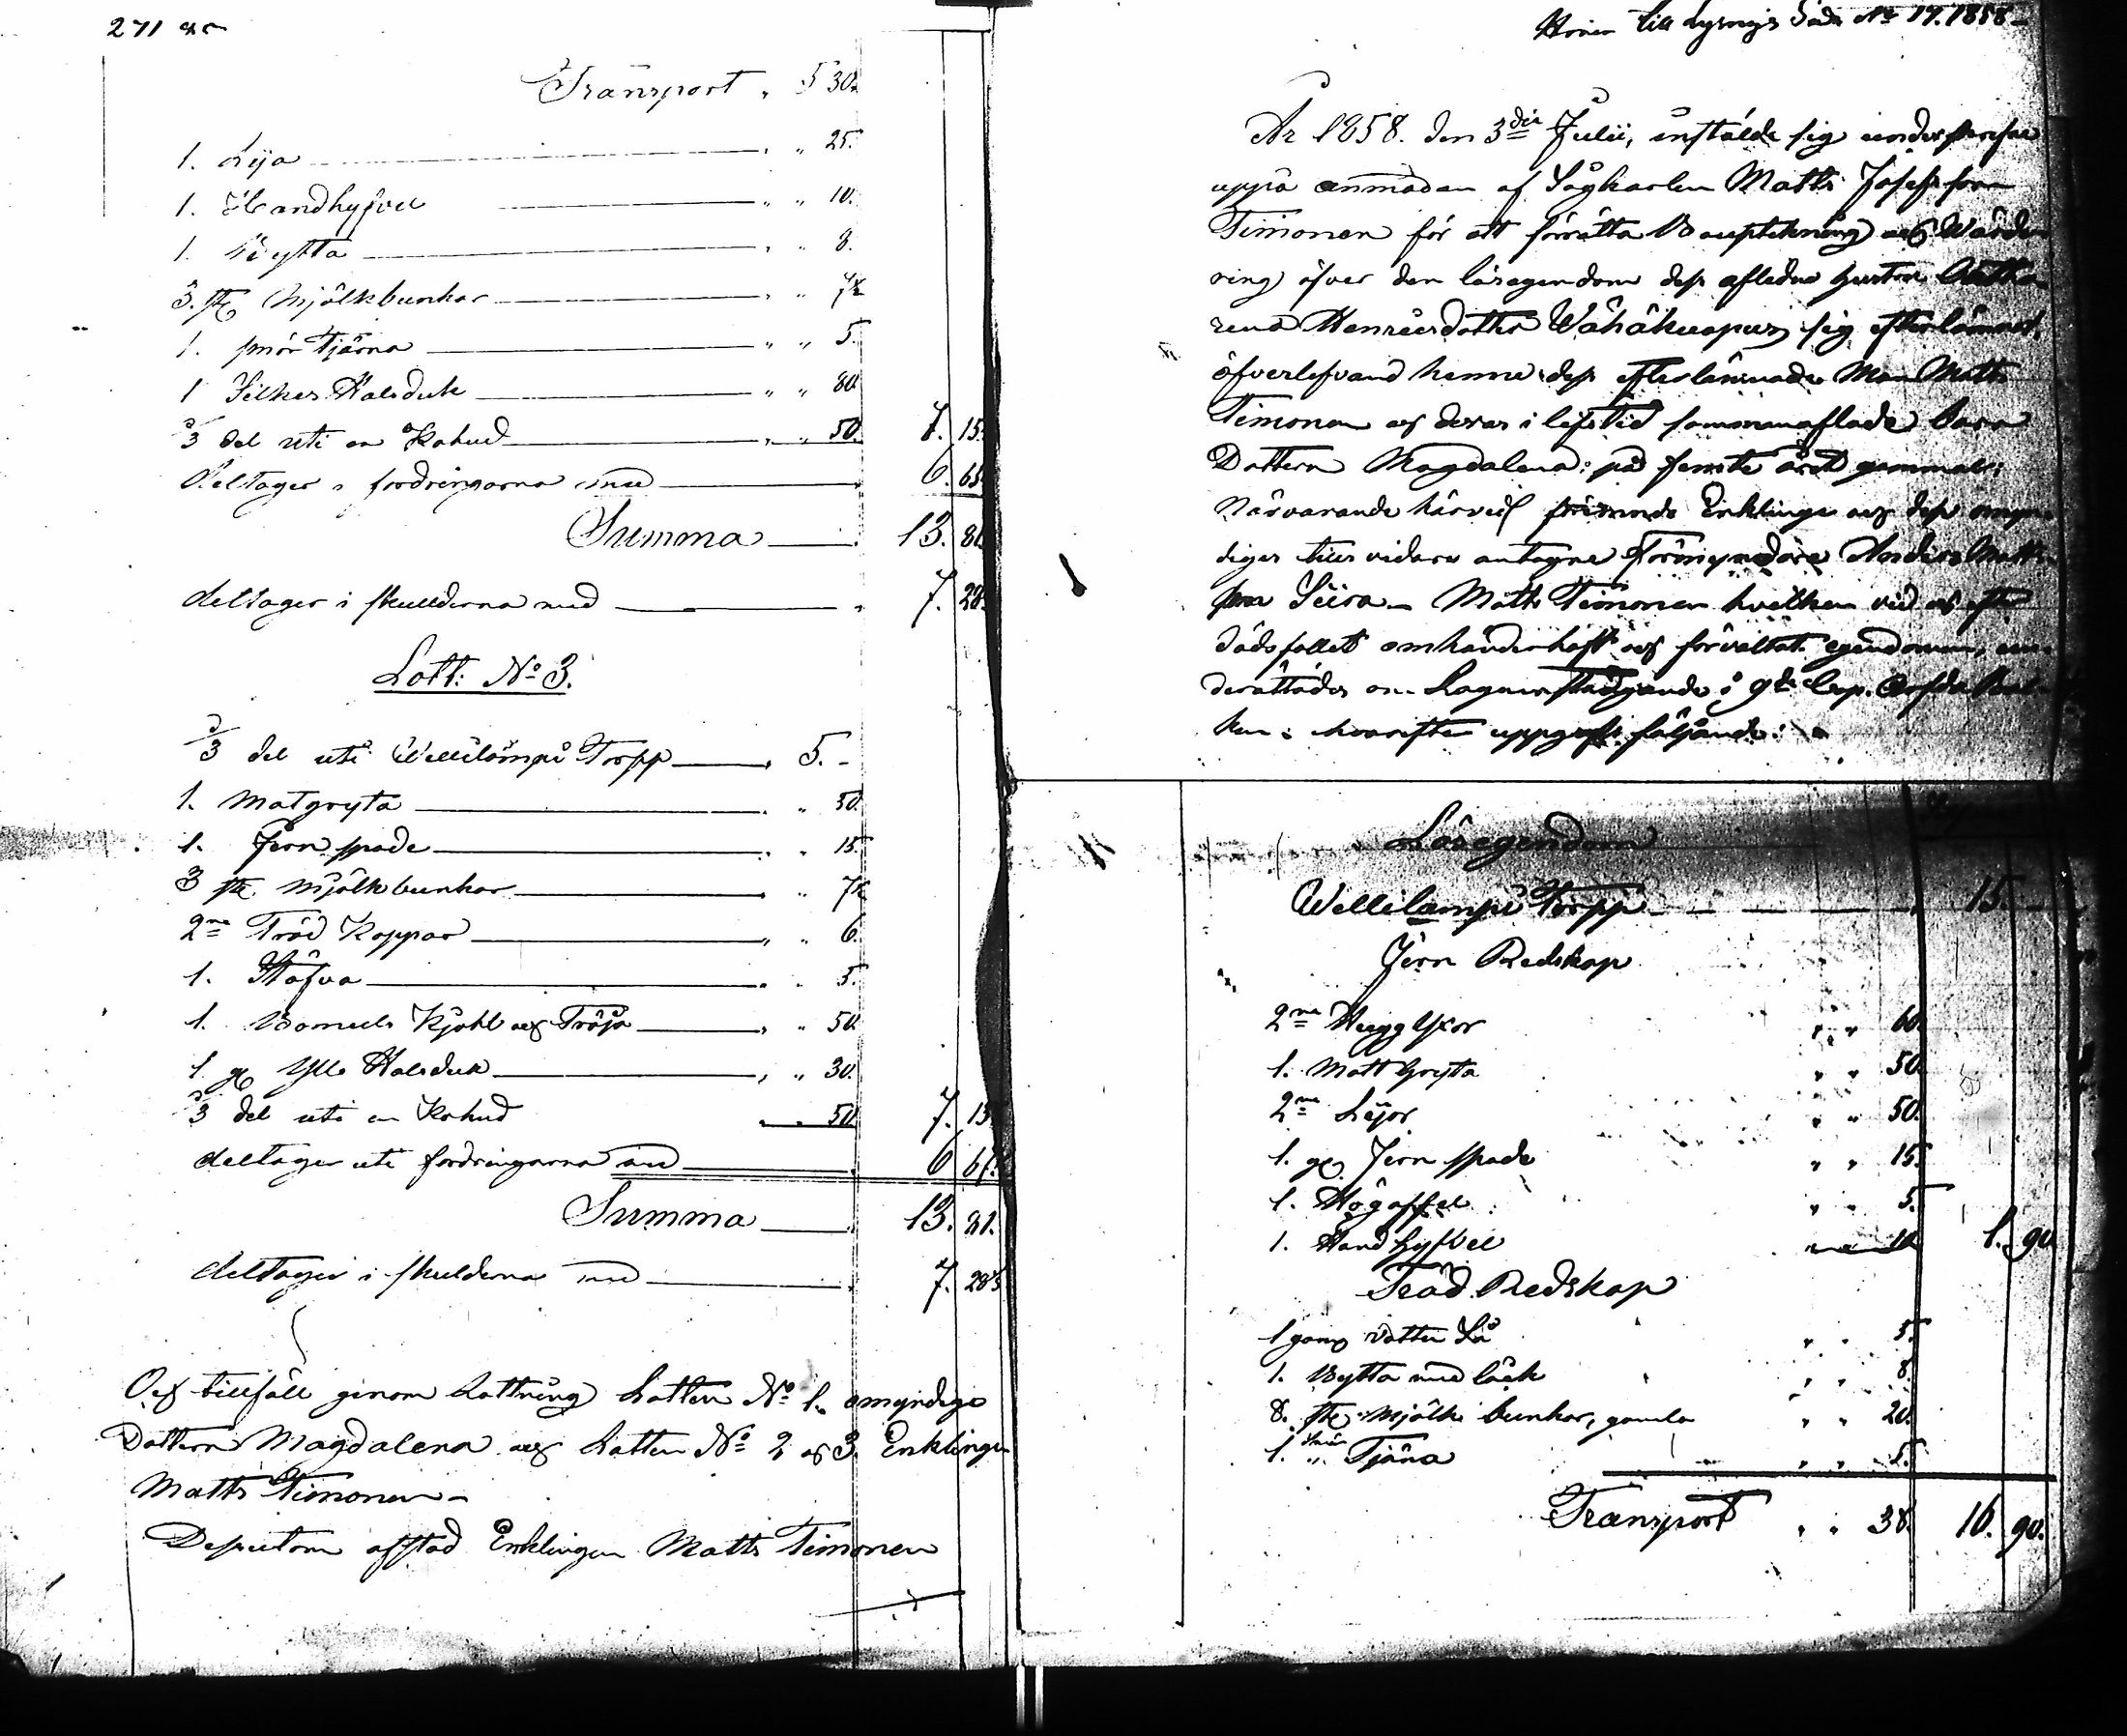 271
Transport „ 5 30.
1. Lija „ „ 25.
1. Handhyfvel „ „ 10.
1. Bytta „ „ 8.
3. st. Mjölkbunkar „ „ 7½
1. smör Tjärna „ „ 5.
1 Silkes Halsduk „ „ 80.
⅓ del uti en Kohud „ „ 50. 7. 15.
deltager i fordringarna med 6. 65.
Summa 13. 81.
deltager i skulderna med 7. 28.
Lott: No 3.
⅓ del uti Wellilampi Torpp 5. -
1. Matgryta „ „ 50.
1. Jern spade „ „ 15.
3 st. Mjölkbunkar „ „ 7½
2ne Träd Koppar „ „ 6.
1. Stäfva „ „ 5.
1. Bomuls Kjohl och Tröja „ „ 50.
1 gl Ylle Halsduk „ „ 30.
⅓ del uti en Kohud „ „ 50. 7. 15
deltager uti fordringarna med 6
Summa 13. 81.
deltager i skulderna med 7. 28⅓
Och tillföll genom Lottning Lotten No 1. omyndige
Dottern Magdalena och Lotten No 2 och 3. Enklingen
Matts Timonen -
Desutom afstod Enklingen Matts Timonen
Hörer till Lysnings No 17. 1858 -
År 1858. den 3die Julii, instälde sig undersparsne
uppå anmodan af Sågkarlen Matts Josefsson
Timonen för att förrätta Bouptekning och Wärde
ring öfver den lösegendom dess aflidna hustru Catha
rina Henricsdotter Wähäkuopus sig efterlämnat,
öfverlefvand henne dess efterlämnade Man Matts
Timonen och deras i lifstid sammanaflade barn
Dottern Magdalena: på femte året gammal;
Närvarande härvid Enklinge och dess omyn
diges tills vidare antagne Förmyndare Anders Matts
son Siira - Matts Timonen hvilken vid och efter
dödsfallet omhänderhaft och förvaltat egendomen, un
derättades om Lagens stadgande i 9de Cap. Ärfda Bal
ken: hvarefter uppgafs följande:
Lösegendom
Wellilampi Torpp 15. -
Jern Redskap
2ne Hugg Yxor „ „ 60.
1. Matt Gryta „ „ 50.
2ne Lijor „ „ 50.
1. gl. Jern spade „ „ 15.
1. Högaffel „ „ 5.
1. Handhyfvel „ „ 10 1. 90
Träd Redskap
1 gam vatten Så „ „ 5.
1. Bytta med låck „ „ 8.
8. st. Mjölk bunkar, gamla „ „ 20.
1. Smör Tjäna „ „ 5.
Transport „ „ 38. 16. 90.